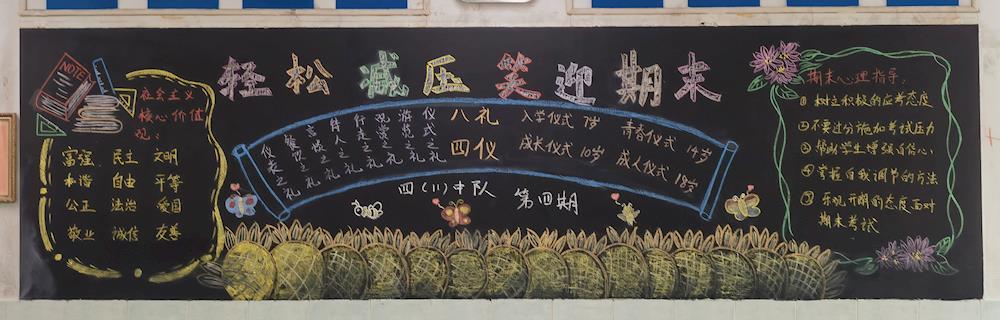 轻松减压笑迎期末
NOTE
社会主义
核心价值
观:
富强 民主 文明
和谐 自由 平等
公正 法治 爱国
敬业 诚信 友善
八礼
四仪
仪式之礼
游览之礼
观赏之礼
行走之礼
待人之礼
言谈之礼
餐饮之礼
仪表之礼
入学仪式 7岁
成长仪式 10岁
青春仪式 14岁
成人仪式 18岁
四(11)中队 第四期
期末心理指导:
①树立积极的应考态度
②不要过分施加考试压力
③帮助学生增强自信心
④掌握自我调节的方法
⑤乐观开朗的态度面对
期末考试